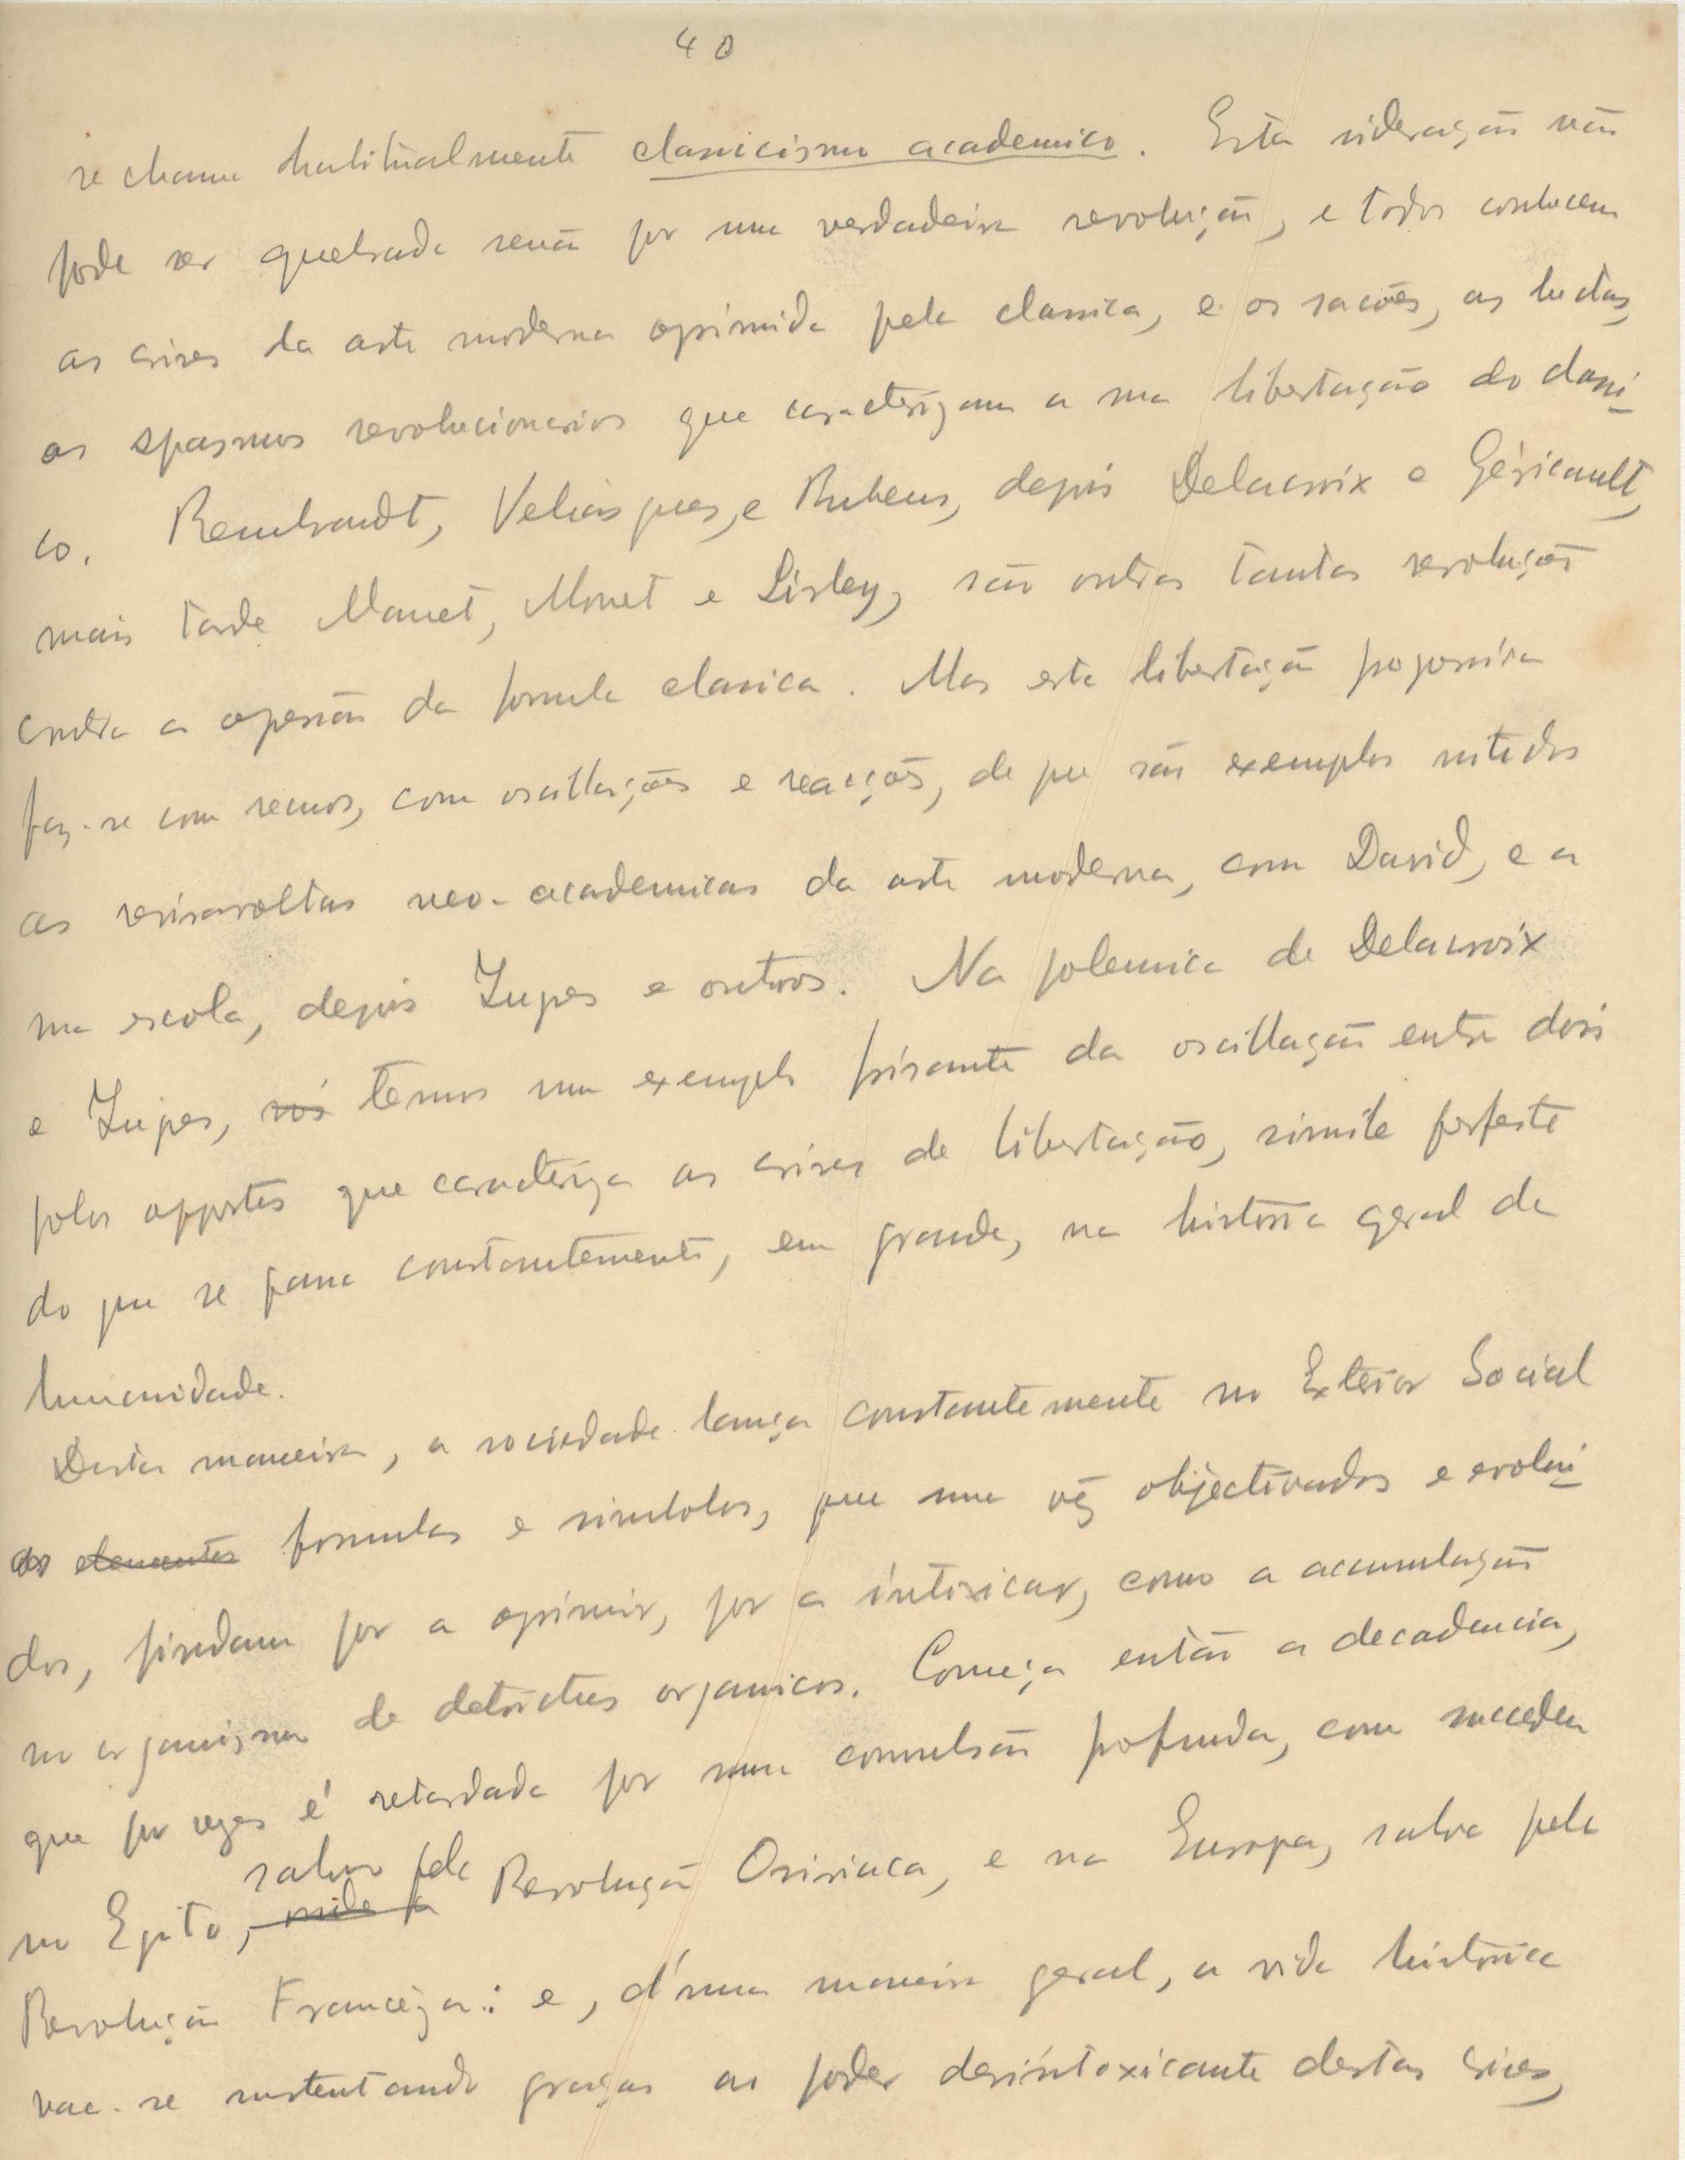 40
se chama habitualmente classicismo academico. Esta sideração não
pode ser quebrada senão por uma verdadeira revolução, e todos conhecem
as crises da arte moderna oprimida pela classica, e os sacões, as luctas,
os spasmos revolucionarios que caracterizam a sua libertação do classi-
co. Rembrandt, Velásques, e Rubens, depois Delacroix e Géricault,
mais tarde Manet, Monet e Sisley, são outras tantas revoluções
contra a opressão da formula classica. Mas esta libertação progressiva
faz-se com recuos, com oscillações e reacções, de que são exemplos nitidos
as reviravoltas neo-academicas da arte moderna, com David, e a
sua escola, depois Ingres e outros. Na polemica de Delacroix
e Ingres, nós temos um exemplo frisante da oscillação entre dois
polos oppostos que caracteriza as crises de libertação, simile perfeito
do que se passa constantemente, em grande, na historia geral da
humanidade.
Desta maneira, a sociedade lança constantemente no Exterior Social
as elementos formulas e simbolos, que uma vêz objectivados e evolui-
dos, findam por a oprimir, por a intoxicar, como a accumulação
no organismo de detrictus organicos. Começa então a decadencia,
que por vezes é retardada por uma convulsão profunda, como succedeu
salvo pela
no Egito, onde a Revolução Osiriaca, e na Europa, salva pela
Revolução Francêza: e, d'uma maneira geral, a vida historica
vae-se sustentando graças ao poder desintoxicante destas crises,